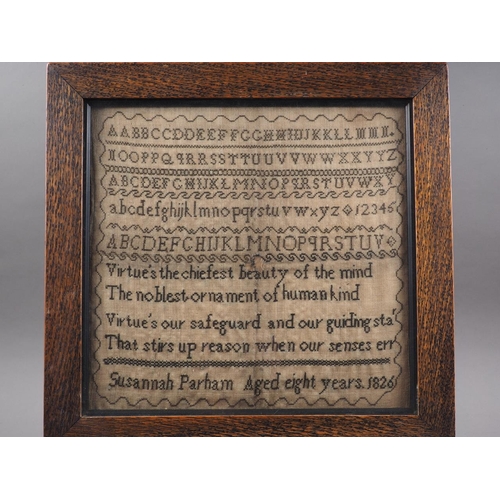 AABBCCDDEEFFGGHHIIJJKKLLMM.
NOOPPQqRRSSTTUUVVWWXXYYZ
ABCDEFGHIJKLMNOPQRSTUVWXY
abcdefghijklmnopqrstuvwxyz 12345
ABCDEFGHIJKLMNOPqRSTUV
Virtue's the chiefest beauty of the mind
The noblest ornament of human kind
Virtue's our safeguard and our guiding sta'
That stirs up reason when our senses err
Susannah Parham Aged eight years. 1826